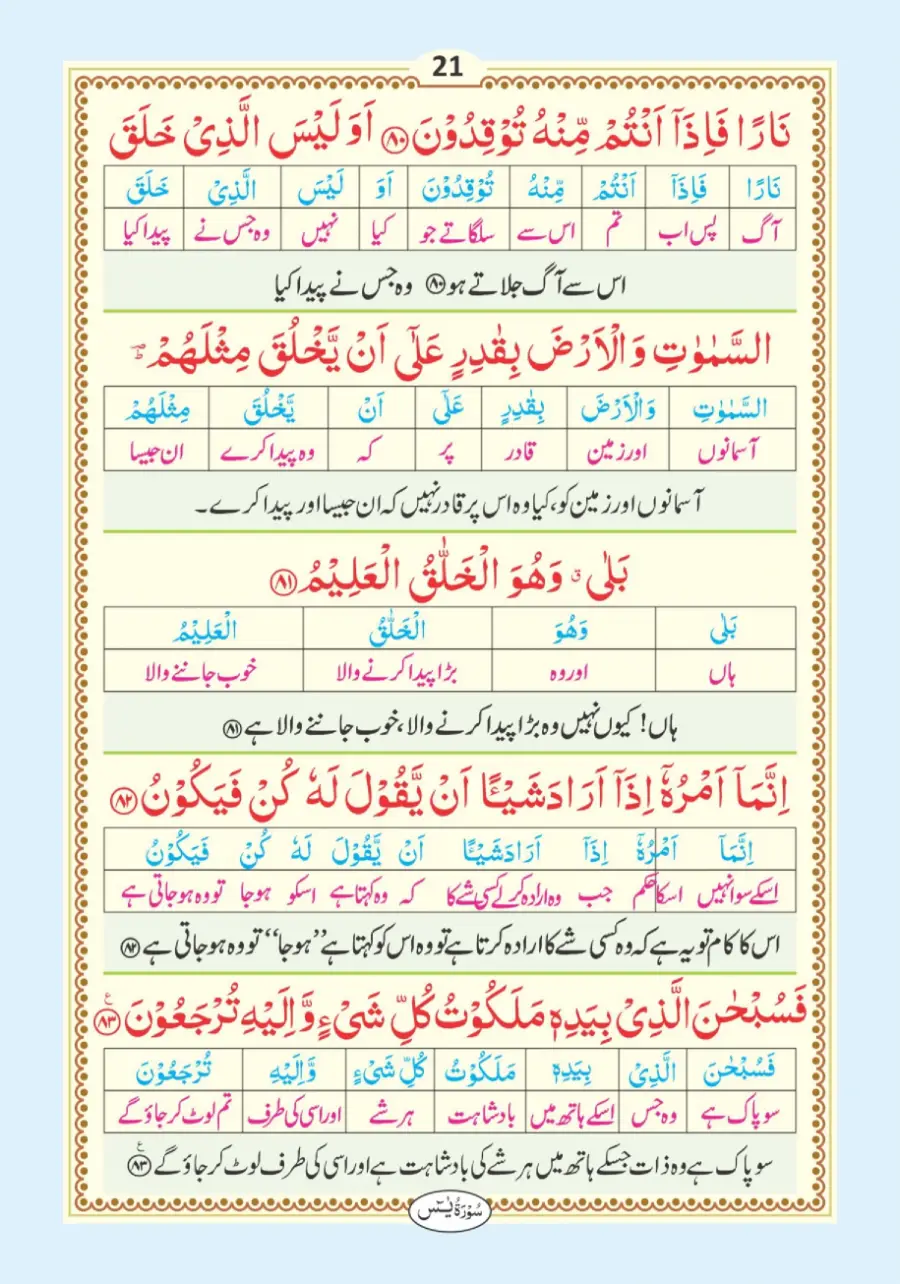 21
نَارًا فَاِذَآ اَنْتُمْ مِّنْهُ تُوْقِدُوْنَ ﴿۸۰﴾ اَوَ لَيْسَ الَّذِيْ خَلَقَ
نَارًا فَاِذَآ اَنْتُمْ مِّنْهُ تُوْقِدُوْنَ اَوَ لَيْسَ الَّذِيْ خَلَقَ
آگ پس اب تم اس سے سلگاتے جو کیا نہیں وہ جس نے پیدا کیا
اس سے آگ جلاتے ہو ﴿۸۰﴾ وہ جس نے پیدا کیا
السَّمٰوٰتِ وَالْاَرْضَ بِقٰدِرٍ عَلٰٓى اَنْ يَّخْلُقَ مِثْلَهُمْ ؕ
السَّمٰوٰتِ وَالْاَرْضَ بِقٰدِرٍ عَلٰٓى اَنْ يَّخْلُقَ مِثْلَهُمْ
آسمانوں اور زمین قادر پر کہ وہ پیدا کرے ان جیسا
آسمانوں اور زمین کو، کیا وہ اس پر قادر نہیں کہ ان جیسا اور پیدا کرے۔
بَلٰى ۗ وَهُوَ الْخَلّٰقُ الْعَلِيْمُ ﴿۸۱﴾
بَلٰى وَهُوَ الْخَلّٰقُ الْعَلِيْمُ
ہاں اور وہ بڑا پیدا کرنے والا خوب جاننے والا
ہاں! کیوں نہیں وہ بڑا پیدا کرنے والا، خوب جاننے والا ہے ﴿۸۱﴾
اِنَّمَآ اَمْرُهٗٓ اِذَآ اَرَادَ شَيْـًٔا اَنْ يَّقُوْلَ لَهٗ كُنْ فَيَكُوْنُ ﴿۸۲﴾
اِنَّمَآ اَمْرُهٗٓ اِذَآ اَرَادَ شَيْـًٔا اَنْ يَّقُوْلَ لَهٗ كُنْ فَيَكُوْنُ
اسکے سوا نہیں اسکا حکم جب وہ ارادہ کرلے کسی شے کا کہ وہ کہتا ہے اسکو ہوجا تو وہ ہوجاتی ہے
اس کا کام تو یہ ہے کہ وہ کسی شے کا ارادہ کرتا ہے تو وہ اس کو کہتا ہے ”ہوجا“ تو وہ ہوجاتی ہے ﴿۸۲﴾
فَسُبْحٰنَ الَّذِيْ بِيَدِهٖ مَلَكُوْتُ كُلِّ شَيْءٍ وَّاِلَيْهِ تُرْجَعُوْنَ ﴿۸۳﴾ ع
فَسُبْحٰنَ الَّذِيْ بِيَدِهٖ مَلَكُوْتُ كُلِّ شَيْءٍ وَّاِلَيْهِ تُرْجَعُوْنَ
سو پاک ہے وہ جس اسکے ہاتھ میں بادشاہت ہر شے اور اسی کی طرف تم لوٹ کر جاؤ گے
سو پاک ہے وہ ذات جسکے ہاتھ میں ہر شے کی بادشاہت ہے اور اسی کی طرف لوٹ کر جاؤ گے ﴿۸۳﴾ ع
سُوْرَةُ يٰسٓ